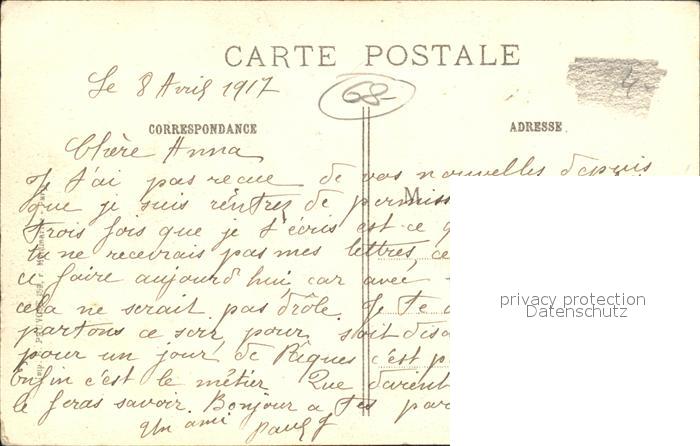 CARTE POSTALE
Le 8 Avril 1917
68
4
CORRESPONDANCE
ADRESSE
Chère Anna
Je n'ai pas reçue de vos nouvelles depuis
que je suis rentrez de permiss
M
trois fois que je t'écris est ce q
tu ne recevrais pas mes lettres, ce
ci faire aujourd'hui car avec
cela ne serait pas drôle. Je te d
partons ce soir pour soit disa
pour un jour de Pâques c'est p
Enfin c'est le métier Que
le feras savoir. Bonjour a tes par
Un ami Paul
privacy protection
Datenschutz